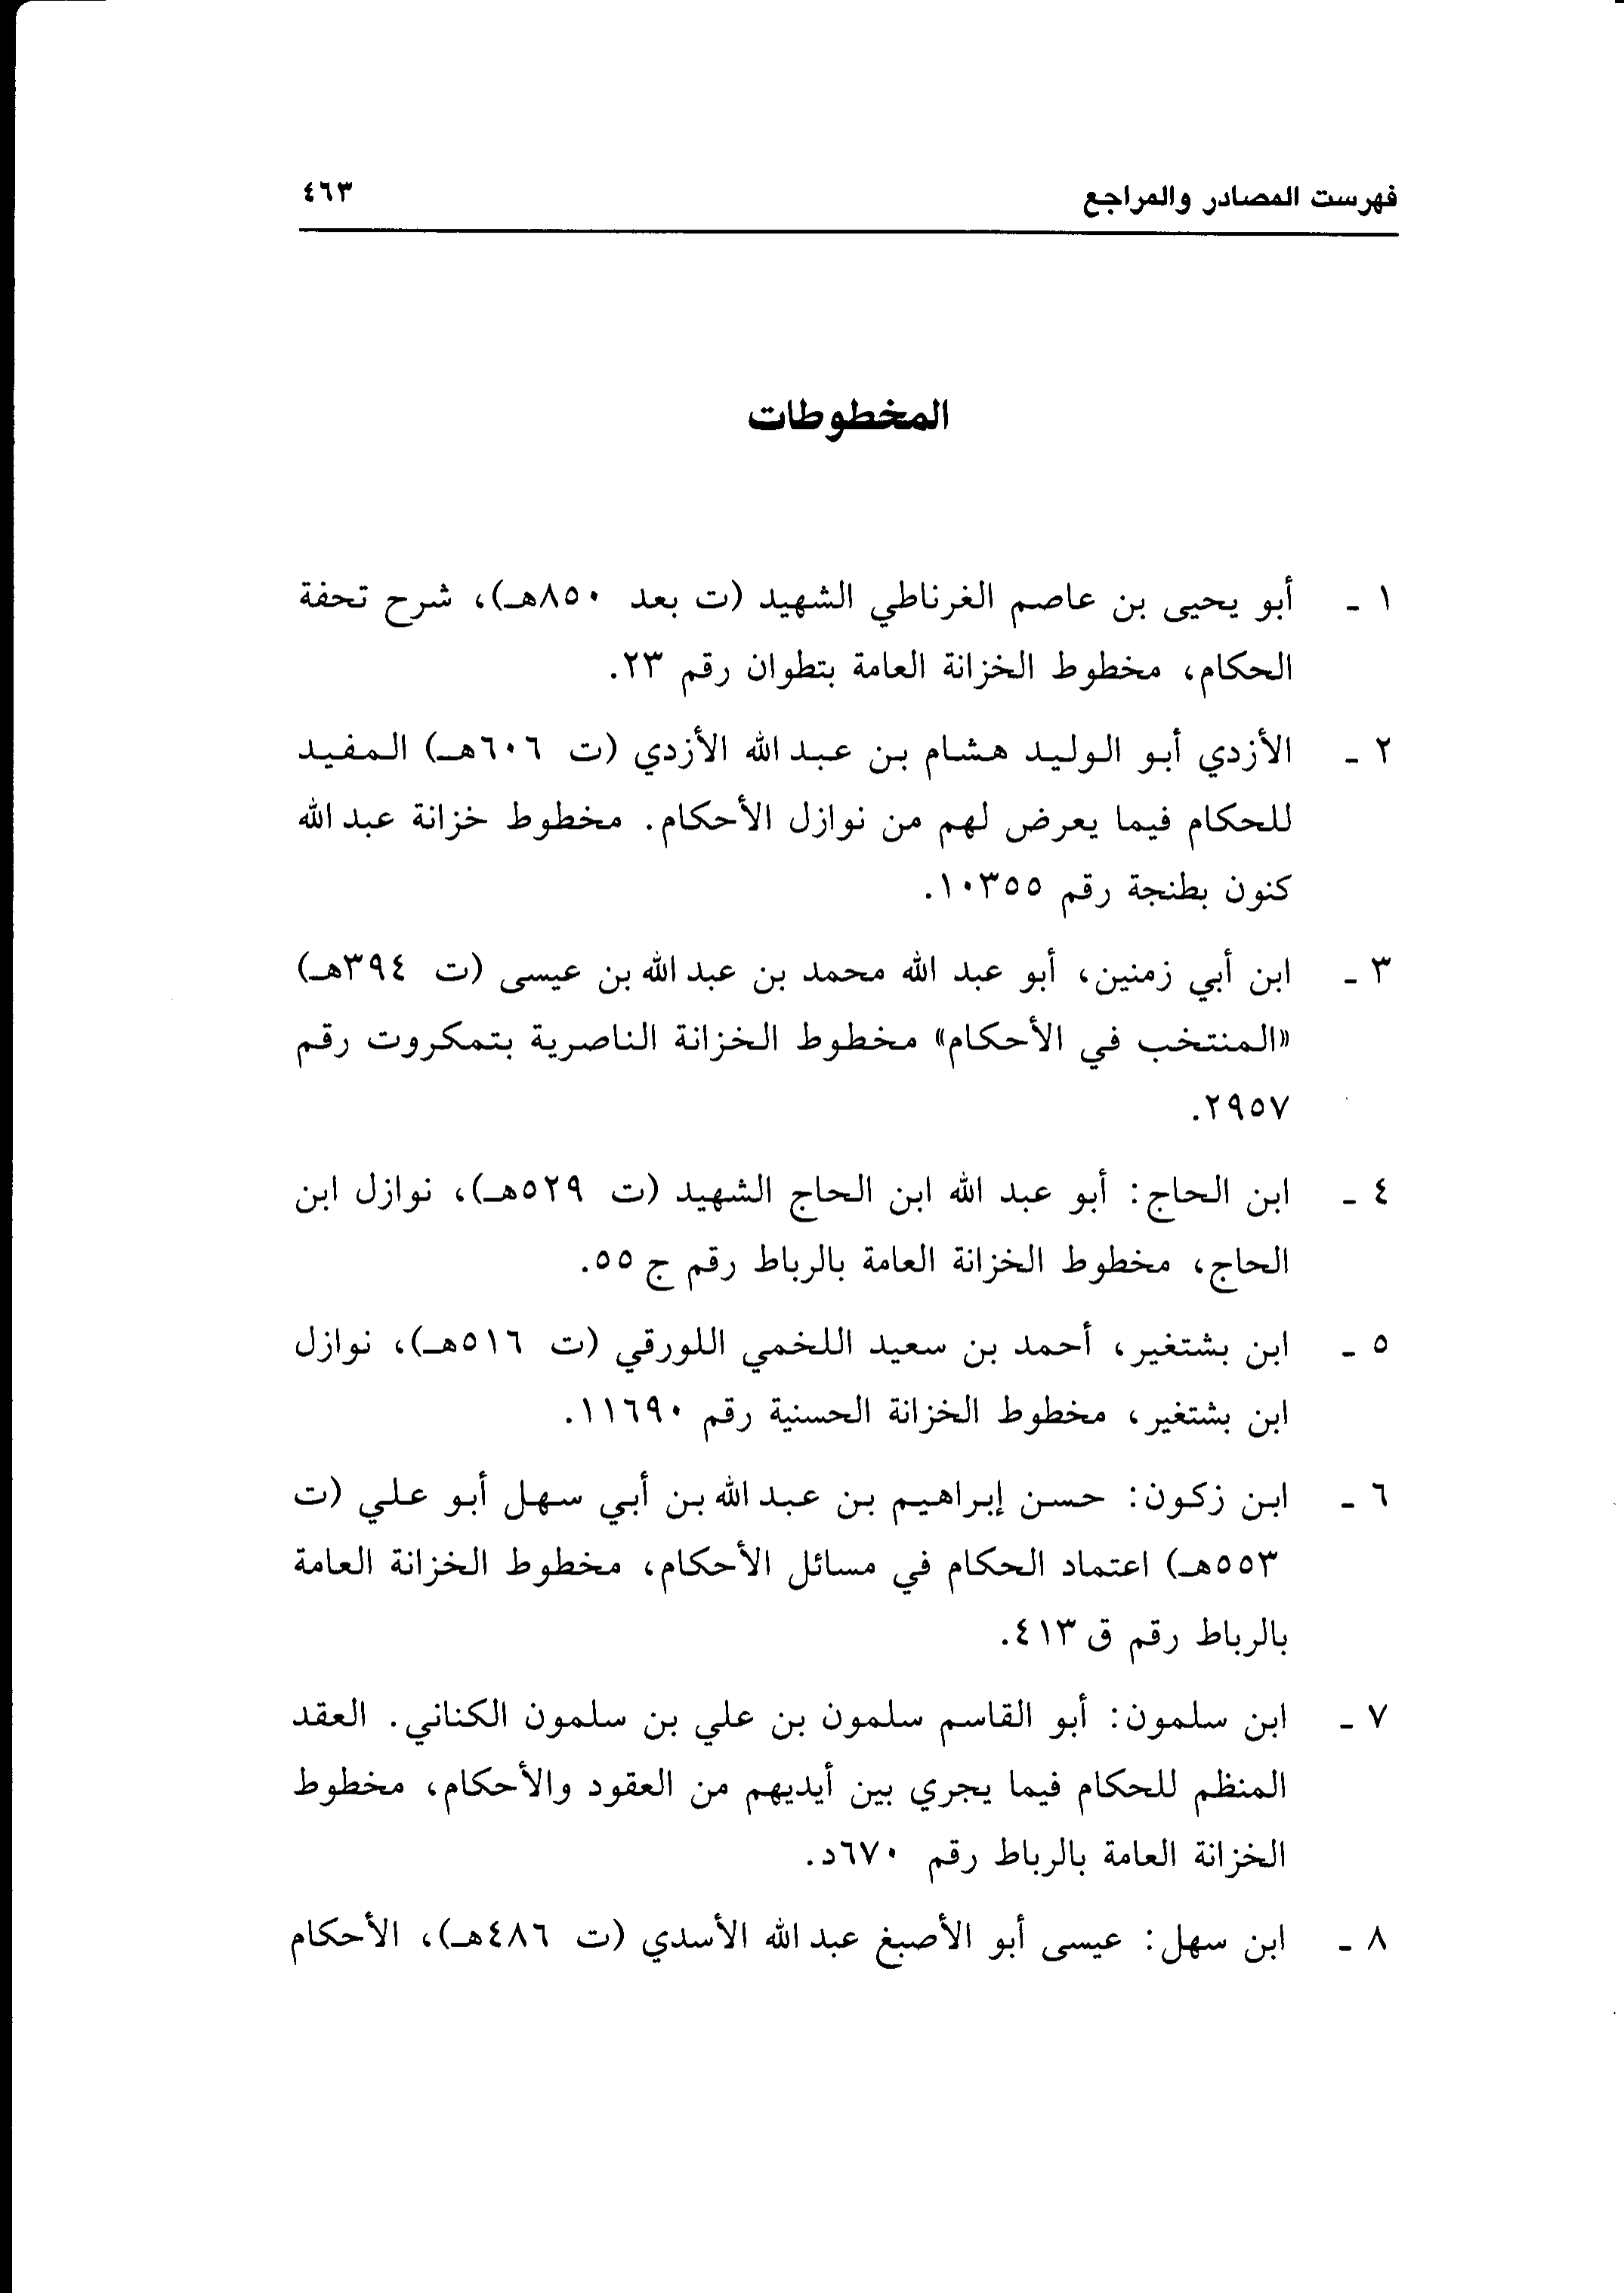 فهرست المصادر والمراجع ٤٦٣
المخطوطات
١ ـ أبو يحيى بن عاصم الغرناطي الشهيد (ت بعد ٨٥٠هـ)، شرح تحفة
الحكام، مخطوط الخزانة العامة بتطوان رقم ٢٣.
٢ ـ الأزدي أبو الوليد هشام بن عبد الله الأزدي (ت ٦٠٦هـ) المفيد
للحكام فيما يعرض لهم من نوازل الأحكام. مخطوط خزانة عبد الله
كنون بطنجة رقم ١٠٣٥٥.
٣ ـ ابن أبي زمنين، أبو عبد الله محمد بن عبد الله بن عيسى (ت ٣٩٤هـ)
«المنتخب في الأحكام» مخطوط الخزانة الناصرية بتمكروت رقم
٢٩٥٧.
٤ ـ ابن الحاج: أبو عبد الله ابن الحاج الشهيد (ت ٥٢٩هـ)، نوازل ابن
الحاج، مخطوط الخزانة العامة بالرباط رقم ج ٥٥.
٥ ـ ابن بشتغير، أحمد بن سعيد اللخمي اللورقي (ت ٥١٦هـ)، نوازل
ابن بشتغير، مخطوط الخزانة الحسنية رقم ١١٦٩٠.
٦ ـ ابن زكون: حسن إبراهيم بن عبد الله بن أبي سهل أبو علي (ت
٥٥٣هـ) اعتماد الحكام في مسائل الأحكام، مخطوط الخزانة العامة
بالرباط رقم ق ٤١٣.
٧ ـ ابن سلمون: أبو القاسم سلمون بن علي بن سلمون الكناني. العقد
المنظم للحكام فيما يجري بين أيديهم من العقود والأحكام، مخطوط
الخزانة العامة بالرباط رقم ٦٧٠د.
٨ ـ ابن سهل: عيسى أبو الأصبغ عبد الله الأسدي (ت ٤٨٦هـ)، الأحكام